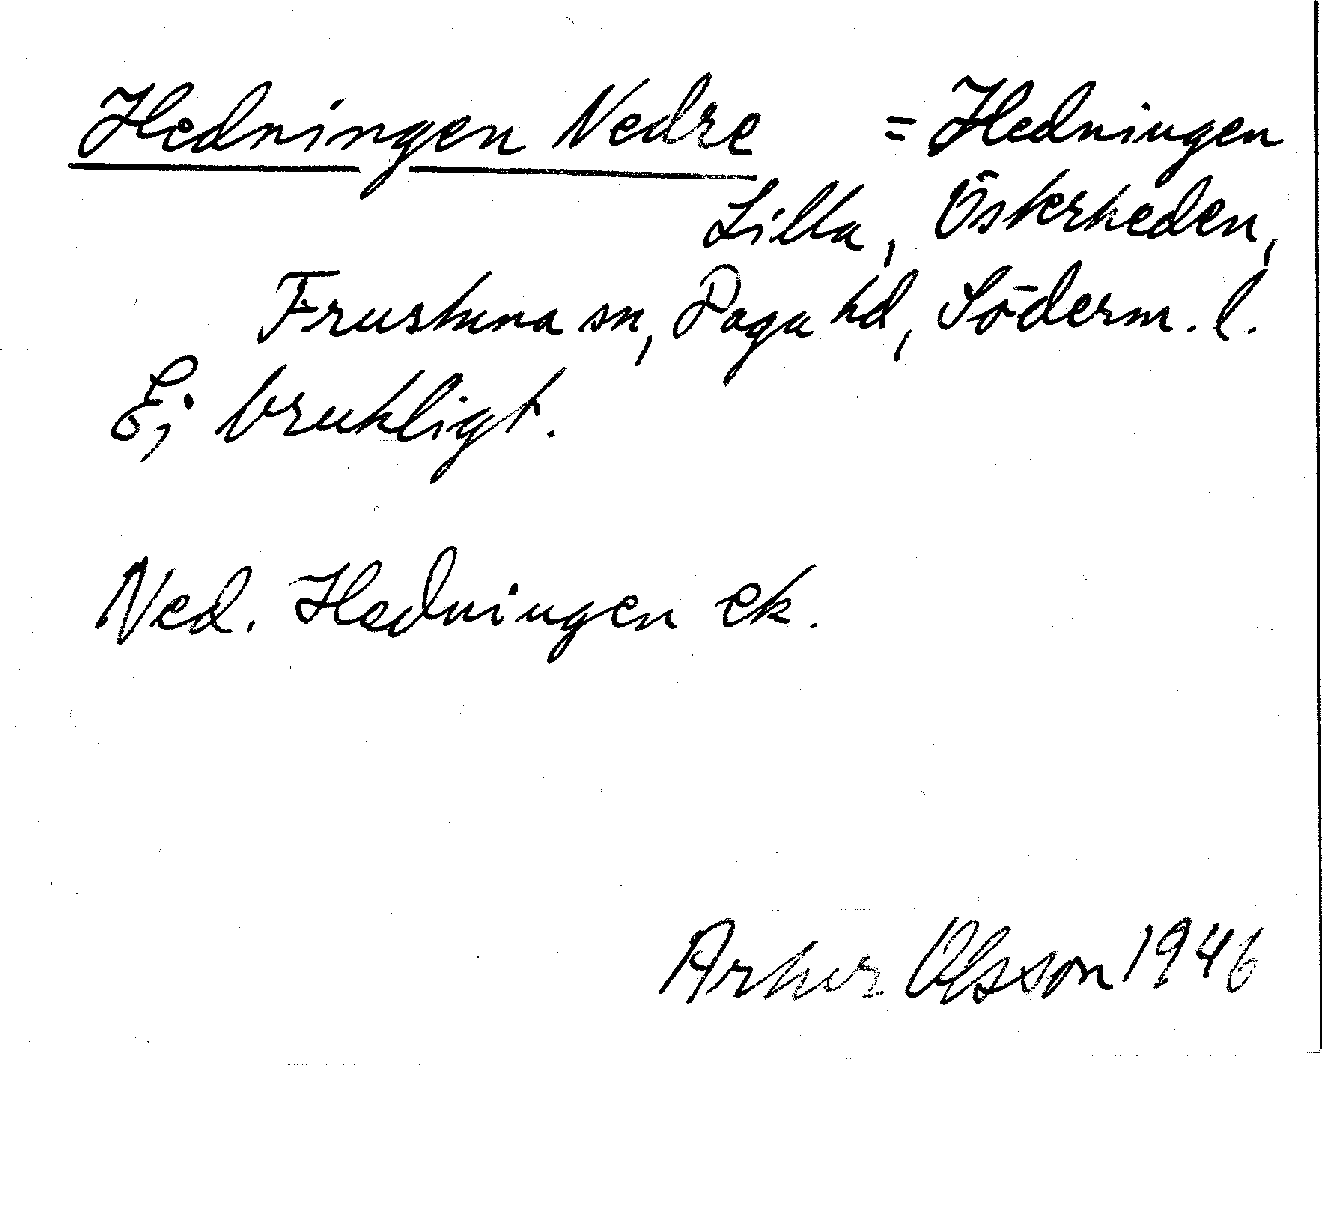 Hedningen Nedre = Hedningen
Lilla, Österheden,
Frustuna sn, Daga hd, Söderm. l.
Ej brukligt.
Ned. Hedningen ek.
Artur Olsson 1946